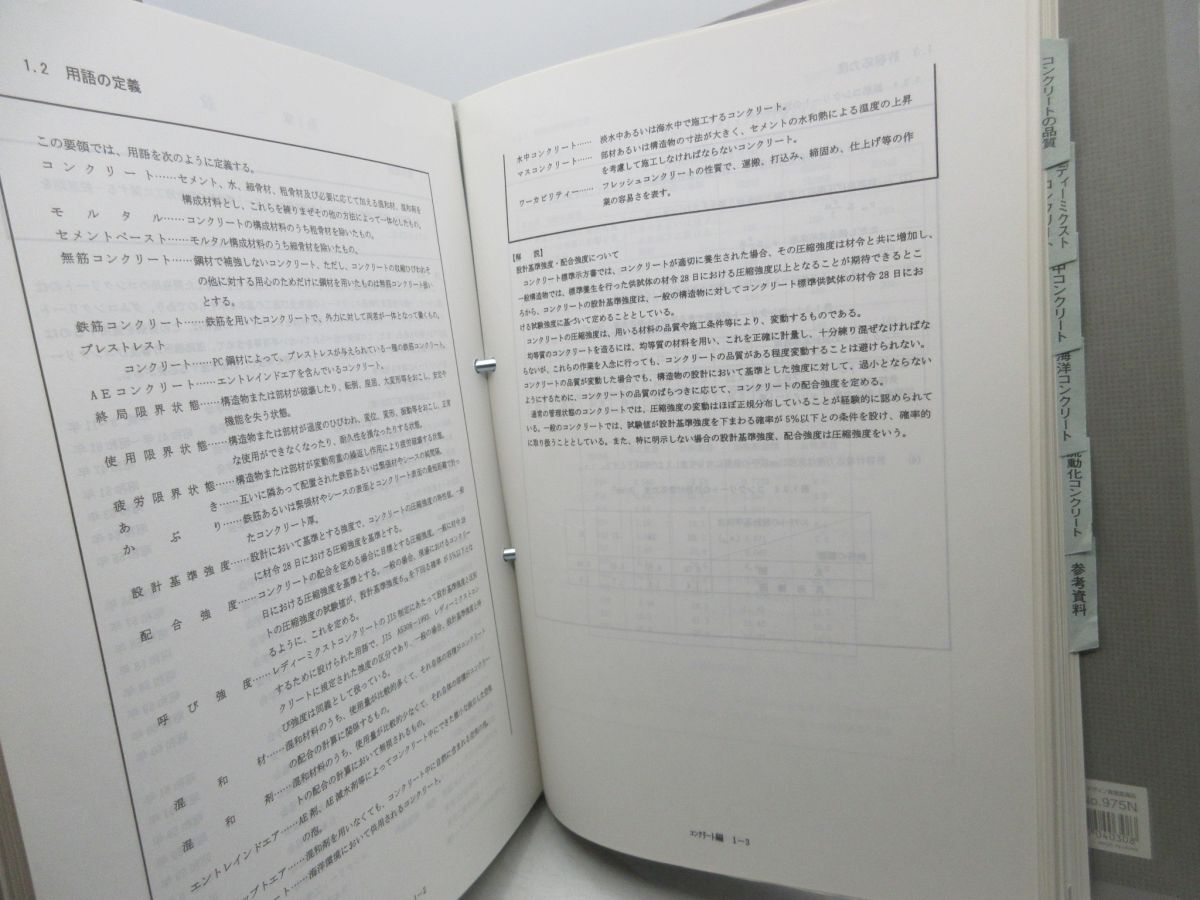 1.2 用語の定義
この要領では、用語を次のように定義する。
コンクリート……セメント、水、細骨材、粗骨材及び必要に応じて加える混和材、混和剤を
構成材料とし、これらを練りまぜその他の方法によって一体化したもの。
モルタル……コンクリートの構成材料のうち粗骨材を除いたもの。
セメントペースト……モルタル構成材料のうち細骨材を除いたもの。
無筋コンクリート……鋼材で補強しないコンクリート、ただし、コンクリートの収縮ひびわれそ
の他に対する用心のためだけに鋼材を用いたものは無筋コンクリート扱い
とする。
鉄筋コンクリート……鉄筋を用いたコンクリートで、外力に対して両者が一体となって働くもの。
プレストレスト
コンクリート……PC鋼材によって、プレストレスが与えられている一種の鉄筋コンクリート。
AEコンクリート……エントレインドエアを含んでいるコンクリート。
終局限界状態……構造物または部材が破壊したり、転倒、座屈、大変形等をおこし、安定や
機能を失う状態。
使用限界状態……構造物または部材が過度のひびわれ、変位、変形、振動等をおこし、正常
な使用ができなくなったり、耐久性を損なったりする状態。
疲労限界状態……構造物または部材が変動荷重の繰返し作用により疲労破壊する状態。
あき……互いに隣あって配置された鉄筋あるいは緊張材やシースの純間隔。
かぶり……鉄筋あるいは緊張材やシースの表面とコンクリート表面の最短距離で計っ
たコンクリート厚。
設計基準強度……設計において基準とする強度で、コンクリートの圧縮強度の特性値。一般
に材令28日における圧縮強度を基準とする。
配合強度……コンクリートの配合を定める場合に目標とする圧縮強度。一般に材令28
日における圧縮強度を基準とする。一般の場合、現場におけるコンクリー
トの圧縮強度の試験値が、設計基準強度σckを下回る確率が5%以下とな
るように、これを定める。
呼び強度……レディーミクストコンクリートのJIS規定にあたって設計基準強度と区別
するために設けられた用語で、JIS A5308-1993、レディーミクストコン
クリートに規定された強度の区分であり、一般の場合、設計基準強度と呼
び強度は同義として扱っている。
混和材……混和材料のうち、使用量が比較的多くて、それ自体の容積がコンクリート
の配合の計算に関係するもの。
混和剤……混和材料のうち、使用量が比較的少なくて、それ自体の容積がコンクリー
トの配合の計算において無視されるもの。
エントレインドエア……AE剤、AE減水剤等によってコンクリート中にできた微小な独立した空気
の泡。
ップトエア……混和剤を用いなくても、コンクリート中に自然に含まれる空気の泡。
ート……海洋環境において供用されるコンクリート。
1-2
水中コンクリート……淡水中あるいは海水中で施工するコンクリート。
マスコンクリート……部材あるいは構造物の寸法が大きく、セメントの水和熱による温度の上昇
を考慮して施工しなければならないコンクリート。
ワーカビリティー……フレッシュコンクリートの性質で、運搬、打込み、締固め、仕上げ等の作
業の容易さを表す。
【解 説】
設計基準強度・配合強度について
コンクリート標準示方書では、コンクリートが適切に養生された場合、その圧縮強度は材令と共に増加し、
一般構造物では、標準養生を行った供試体の材令28日における圧縮強度以上となることが期待できるとこ
ろから、コンクリートの設計基準強度は、一般の構造物に対してコンクリート標準供試体の材令28日にお
ける試験強度に基づいて定めることとしている。
コンクリートの圧縮強度は、用いる材料の品質や施工条件等により、変動するものである。
均等質のコンクリートを造るには、均等質の材料を用い、これを正確に計量し、十分練り混ぜなければな
らないが、これらの作業を入念に行っても、コンクリートの品質がある程度変動することは避けられない。
コンクリートの品質が変動した場合でも、構造物の設計において基準とした強度に対して、過小とならない
ようにするために、コンクリートの品質のばらつきに応じて、コンクリートの配合強度を定める。
通常の管理状態のコンクリートでは、圧縮強度の変動はほぼ正規分布していることが経験的に認められて
いる。一般のコンクリートでは、試験値が設計基準強度を下まわる確率が5%以下との条件を設け、確率的
に取り扱うこととしている。また、特に明示しない場合の設計基準強度、配合強度は圧縮強度をいう。
コンクリート編 1-3
コンクリートの品質
ディーミクスト
コンクリート
中コンクリート
海洋コンクリート
流動化コンクリート
参考資料
No.975N